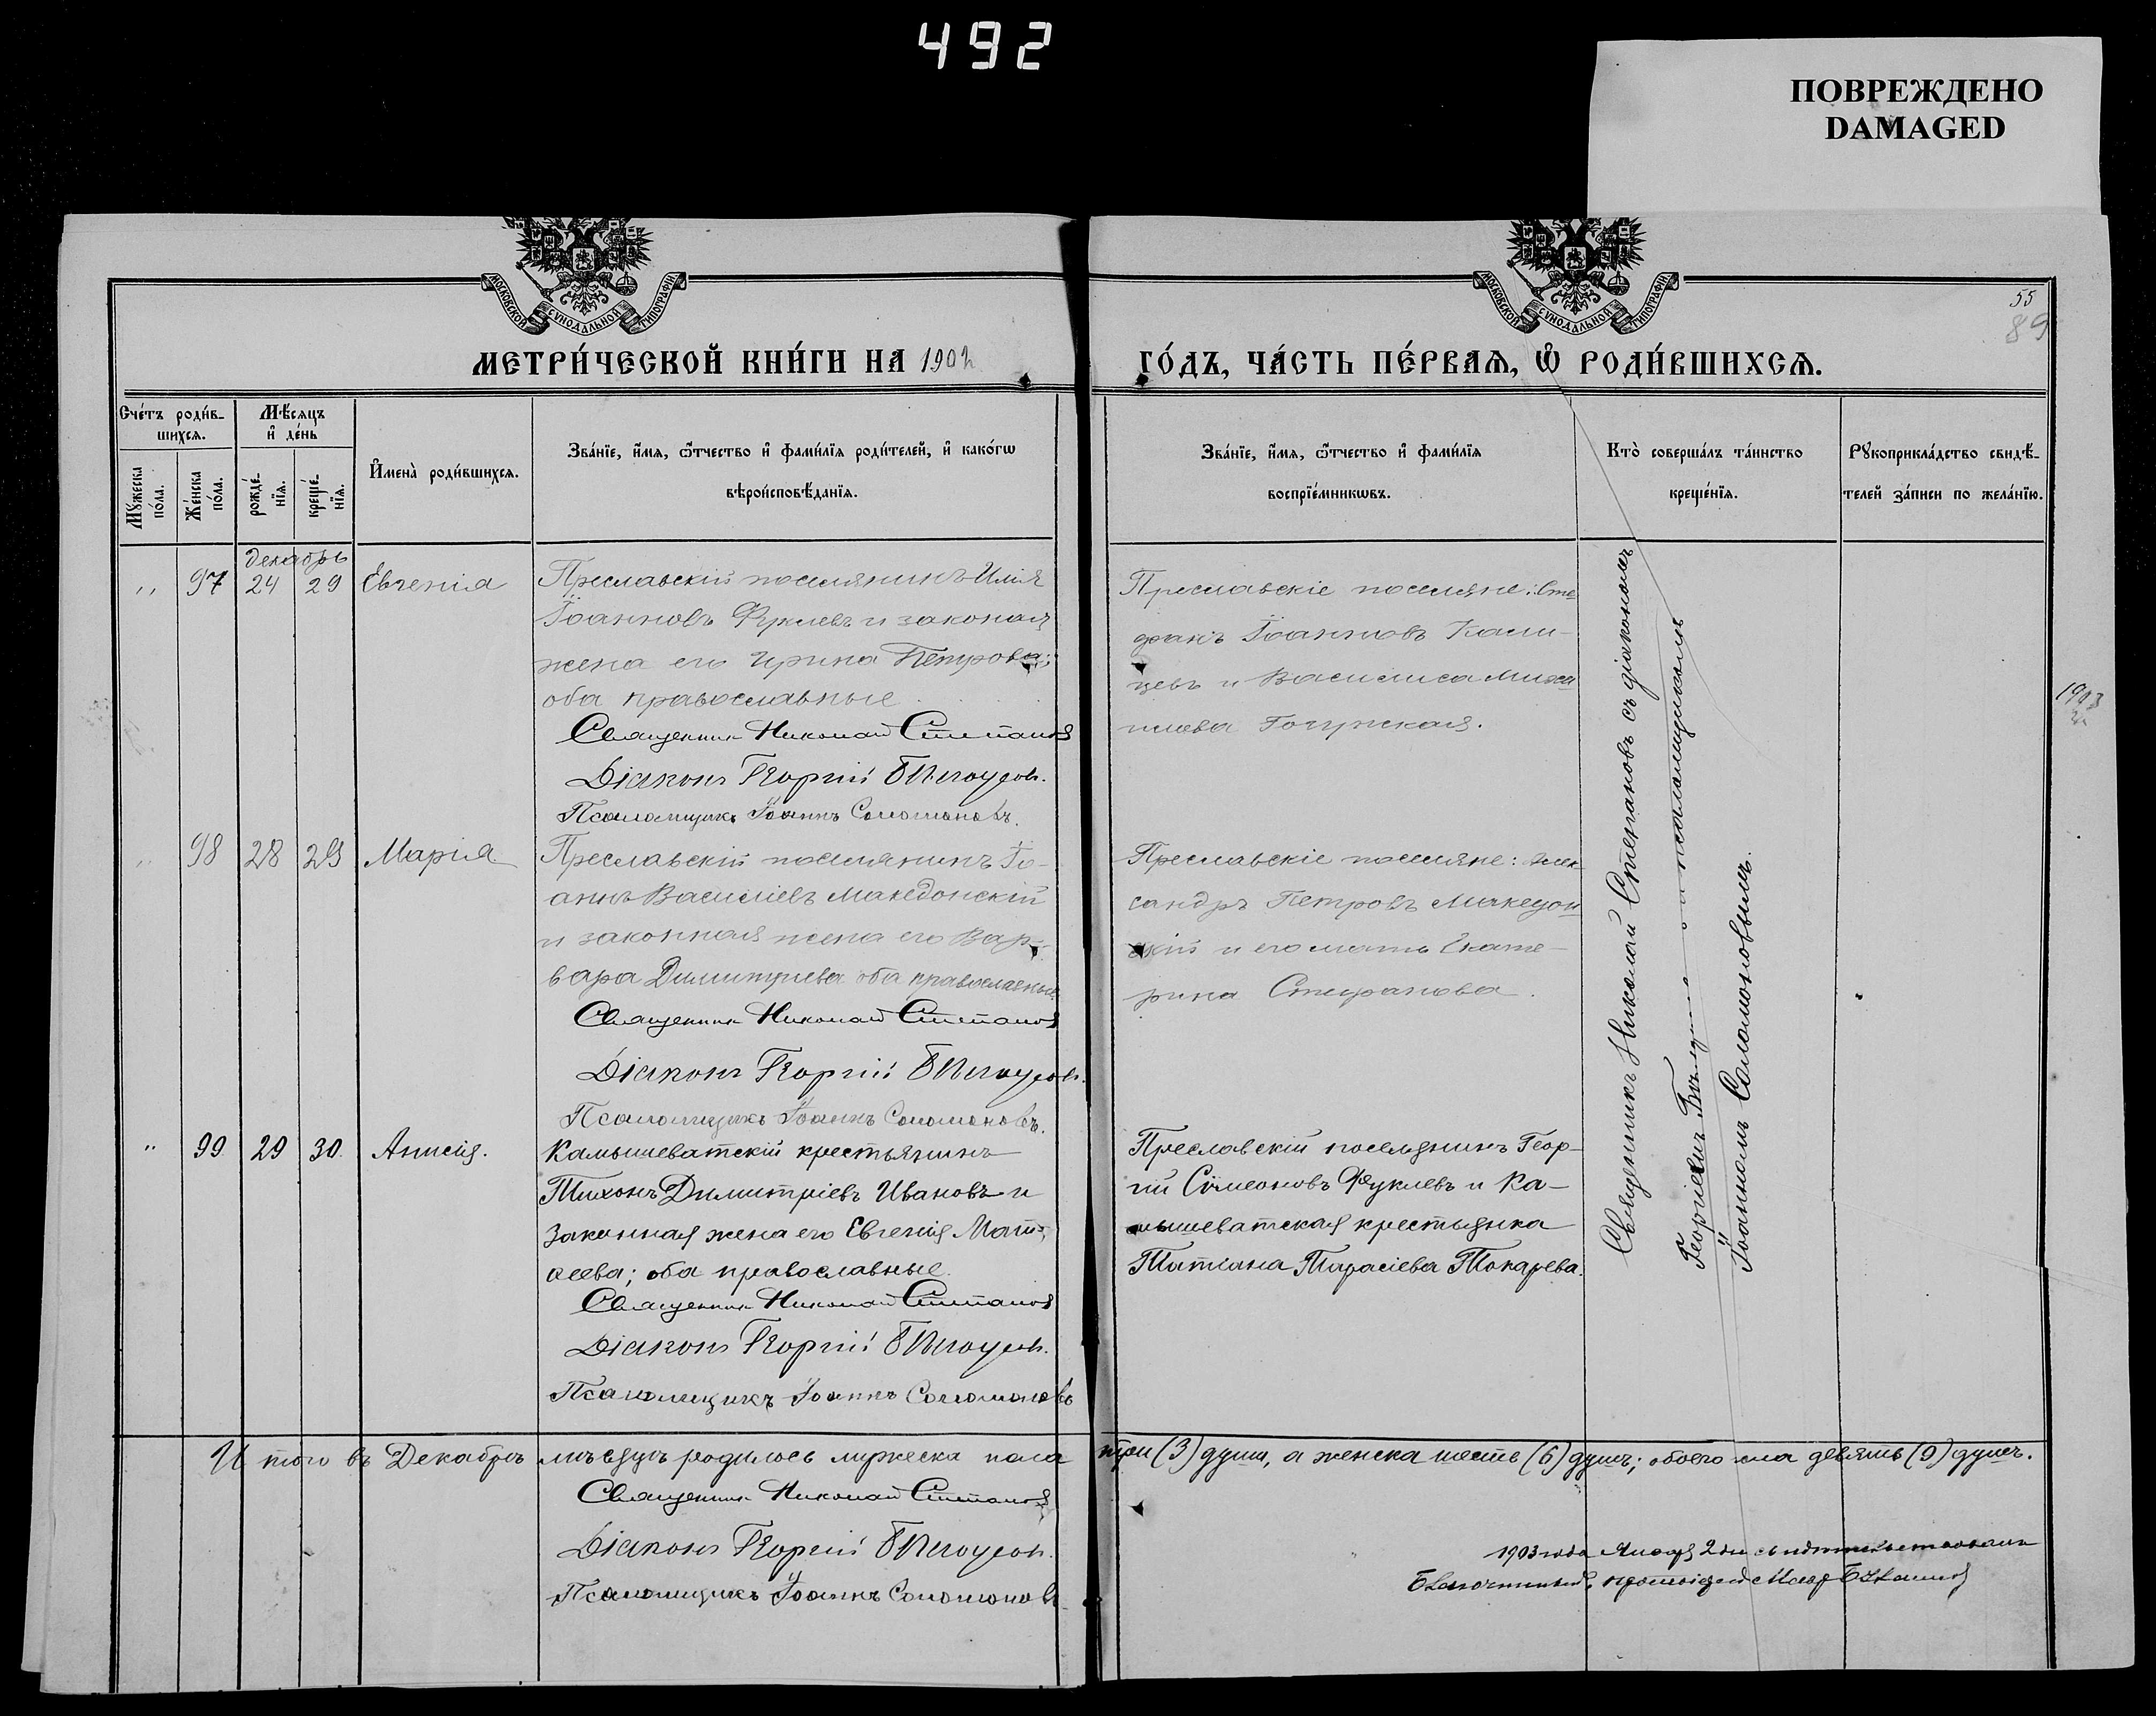 492
ПОВРЕЖДЕНО
DAMAGED
МОСКОВСКОЙ СѴНОДАЛЬНОЙ ТИПОГРАФІИ.
МОСКОВСКОЙ СѴНОДАЛЬНОЙ ТИПОГРАФІИ.
55
89
МЕТРИ́ЧЕСКОЙ КНИ́ГИ НА 1902
ГО́ДЪ, ЧА́СТЬ ПЕ́РВАѦ, Ѡ҆ РОДИ́ВШИХСѦ.
Сче́тъ роди́в-
шихсѧ.
Мѣ́сѧцъ
и҆ де́нь
Мꙋ́жеска
по́ла.
Же́нска
по́ла.
рожде́-
нїѧ.
креще́-
нїѧ.
И҆мена̀ роди́вшихсѧ.
Зва́нїе, и҆́мѧ, ѻ҆́тчество и҆ фами́лїѧ роди́телей, и҆ како́гѡ
вѣроисповѣ́данїѧ.
Зва́нїе, и҆́мѧ, ѻ҆́тчество и҆ фами́лїѧ
воспрїе́мникѡвъ.
Кто̀ соверша́лъ та́инство
креще́нїѧ.
Рꙋкоприкла́дство свидѣ́-
телей за́писи по жела́нїю.
декабрь
,, 97 24 29 Евгенія
Преславскій поселянинъ Илія
Іоанновъ Фуклевъ и законая
жена его Ирина Петрова;
оба православные
Священникъ Николай Степановъ
Діаконъ Георгій Бѣлоусовъ.
Псаломщикъ Іоаннъ Соломоновъ.
Преславскіе поселяне: Сте
фанъ Іоанновъ Кали-
цевъ и Василиса Миха
илева
,, 98 28 29 Марія
Преславскій поселянинъ Іо-
аннъ Василіевъ Македонскій
и законная жена его Вар-
вара Димитріева оба православные
Священникъ Николай Степановъ
Діаконъ Георгій Бѣлоусовъ.
Псаломщикъ Іоаннъ Соломоновъ.
Преславскіе поселяне: Алек
сандръ Петровъ Македон
скій и его мать Екате-
рина Стефанова.
,, 99 29 30. Анисія.
Камышеватскій крестьянинъ
Тихонъ Димитріевъ Ивановъ и
законная жена его Евгенія Мат-
ѳеева; оба православные.
Священникъ Николай Степановъ
Діаконъ Георгій Бѣлоусовъ.
Псаломщикъ Іоаннъ Соломоновъ
Преславскій поселянинъ Геор-
гій Сѵмеоновъ Фуклевъ и Ка-
мышеватская крестьянка
Татіана Тарасіева Токарева.
Священникъ Николай Степановъ съ діакономъ
Георгіемъ и псаломщикомъ
Іоанномъ Соломоновымъ.
1903
И того въ Декабрѣ мѣсяцѣ родилось мужеска пола три (3) души, а женска шесть (6) душъ; обоего пола девять (9) душъ.
Священникъ Николай Степановъ
Діаконъ Георгій Бѣлоусовъ.
Псаломщикъ Іоаннъ Соломоновъ
1903 года Января 2 дня свидѣтельствовалъ
Благочинный, протоіерей